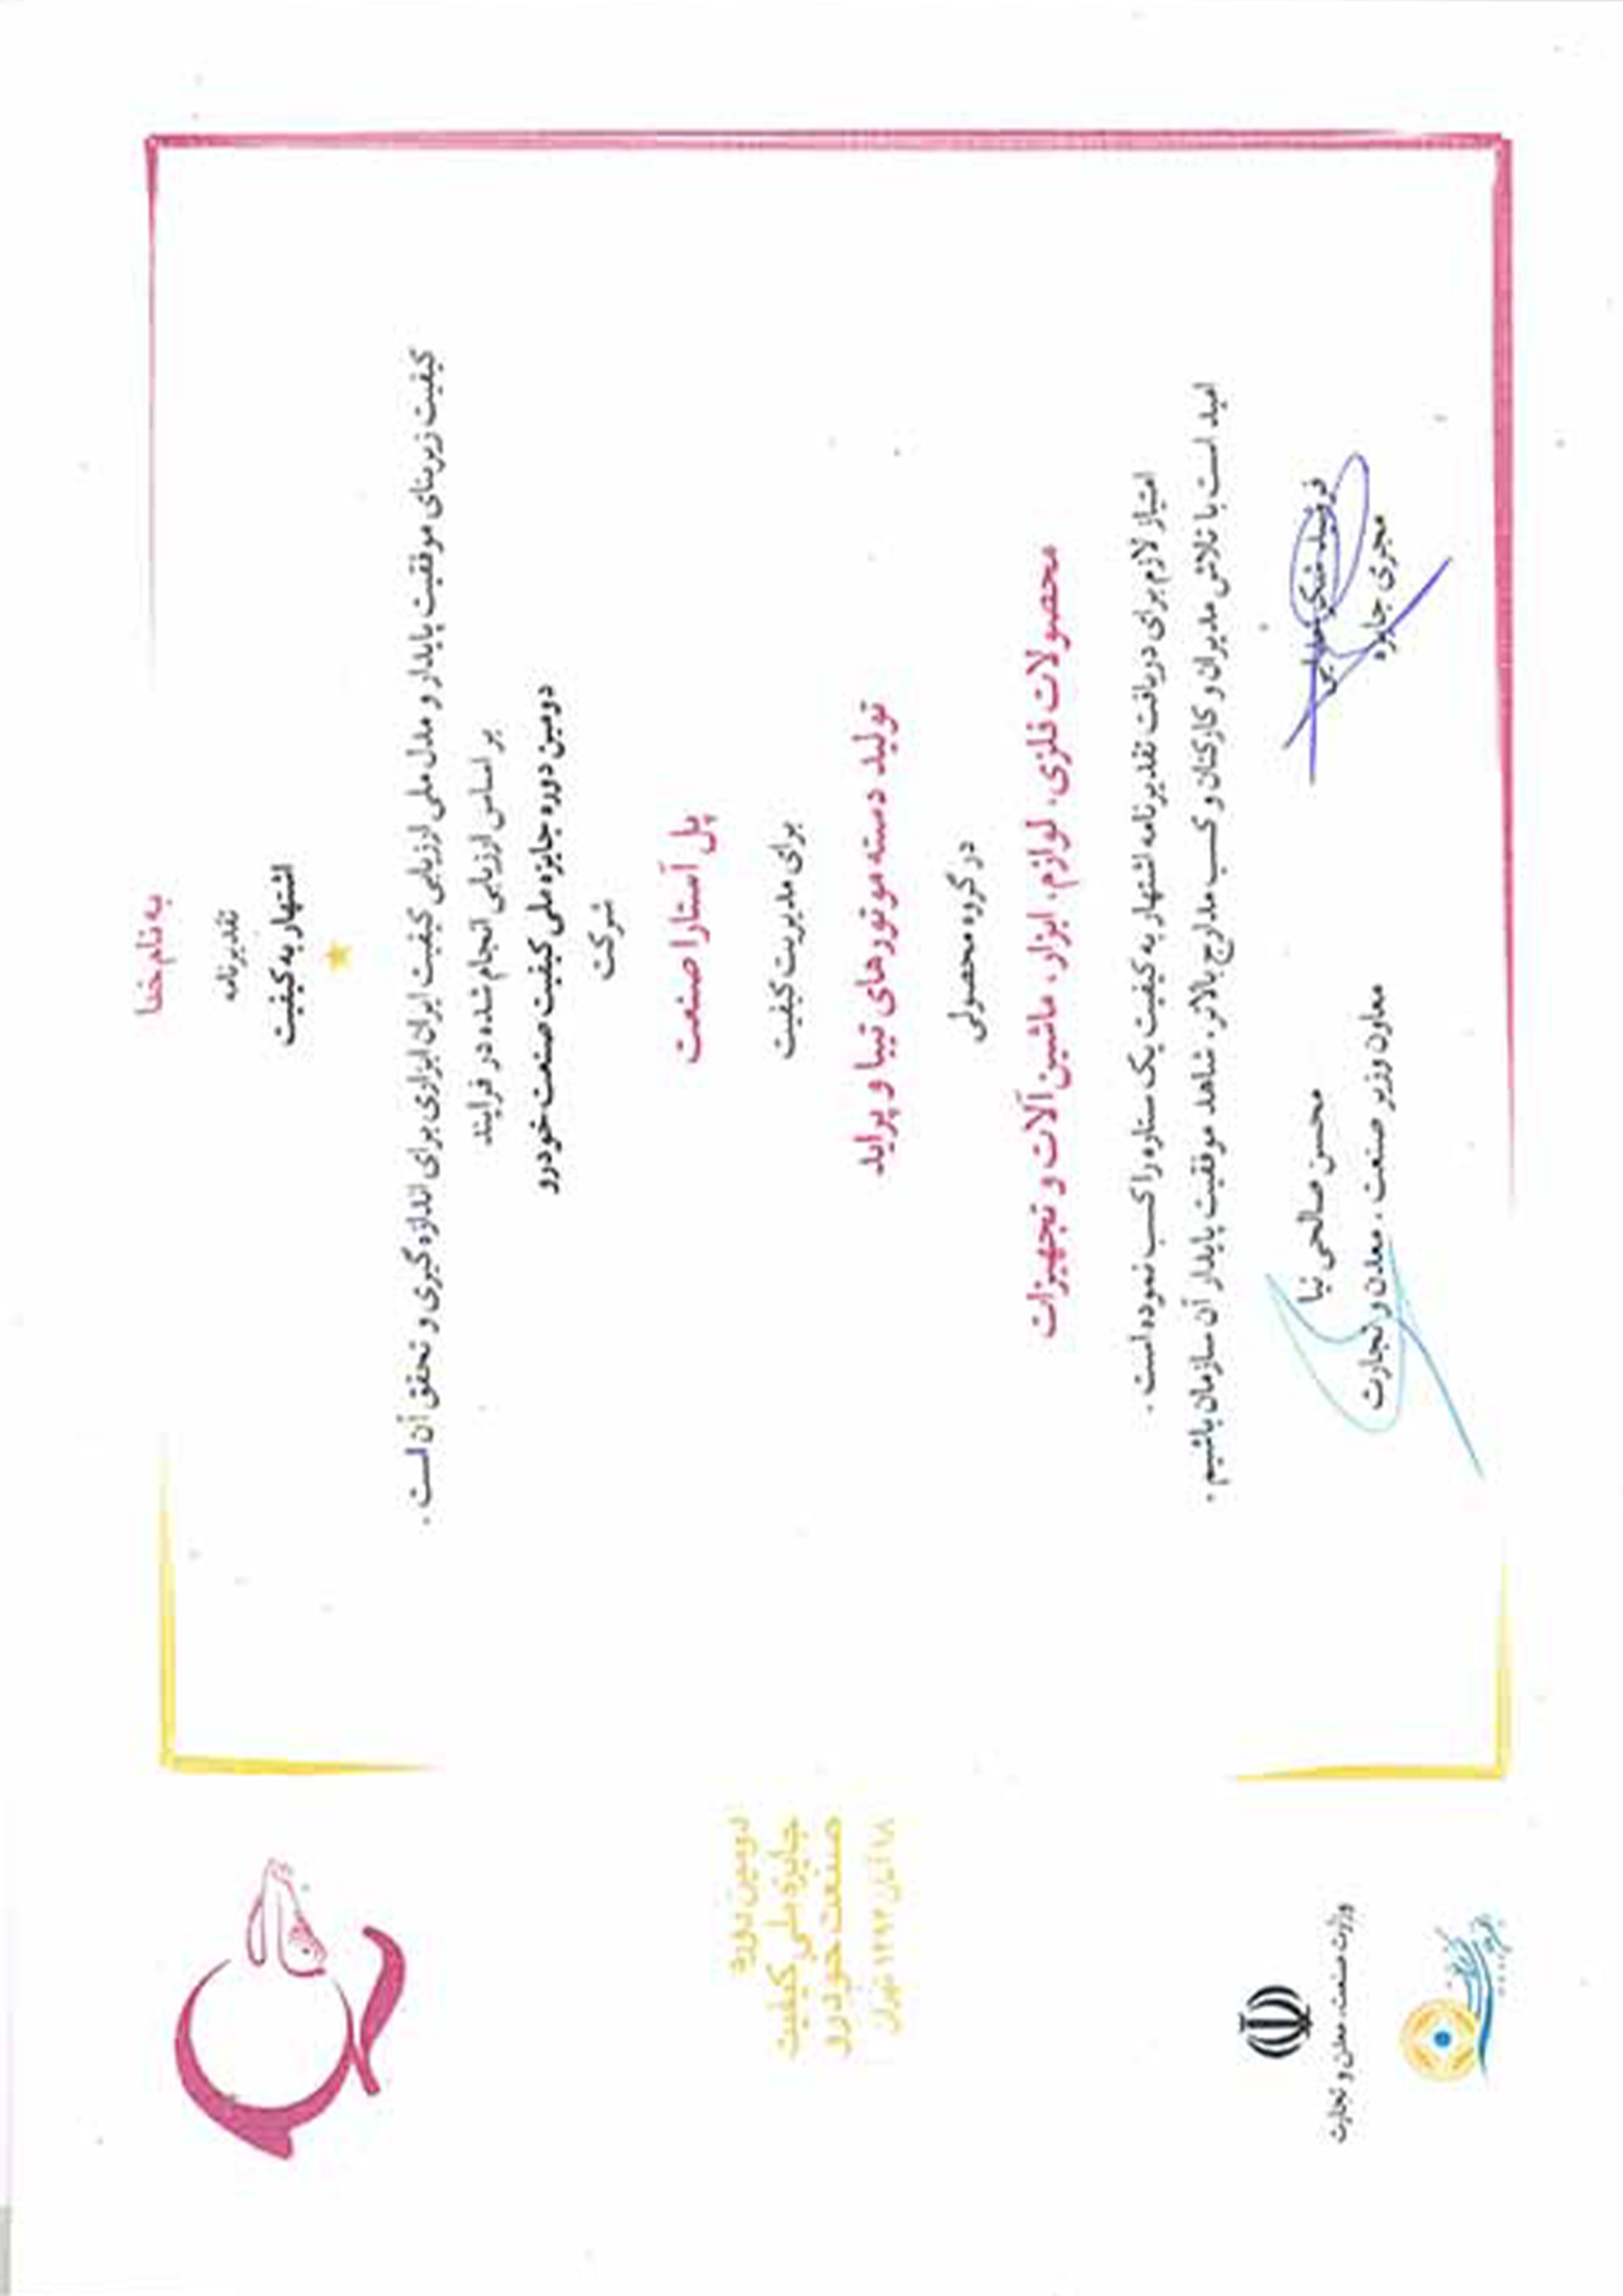 به نام خدا
تقدیرنامه
اشتهار به کیفیت
کیفیت زیربنای موفقیت پایدار و مدل ملی ارزیابی کیفیت ایران ابزاری برای اندازه گیری و تحقق آن است .
بر اساس ارزیابی انجام شده در فرایند
دومین دوره جایزه ملی کیفیت صنعت خودرو
شرکت
پل آستارا صنعت
برای مدیریت کیفیت
تولید دسته موتورهای تیبا و پراید
در گروه محصولی
محصولات فلزی، لوازم، ابزار، ماشین آلات و تجهیزات
امتیاز لازم برای دریافت تقدیرنامه اشتهار به کیفیت یک ستاره را کسب نموده است .
امید است با تلاش مدیران و کارکنان و کسب مدارج بالاتر، شاهد موفقیت پایدار آن سازمان باشیم .
محسن صالحی نیا
معاون وزیر صنعت ، معدن و تجارت
مجری جایزه
دومین دوره
جایزه ملی کیفیت
صنعت خودرو
۱۸ آبان ۱۳۹۳ تهران
وزارت صنعت، معدن و تجارت